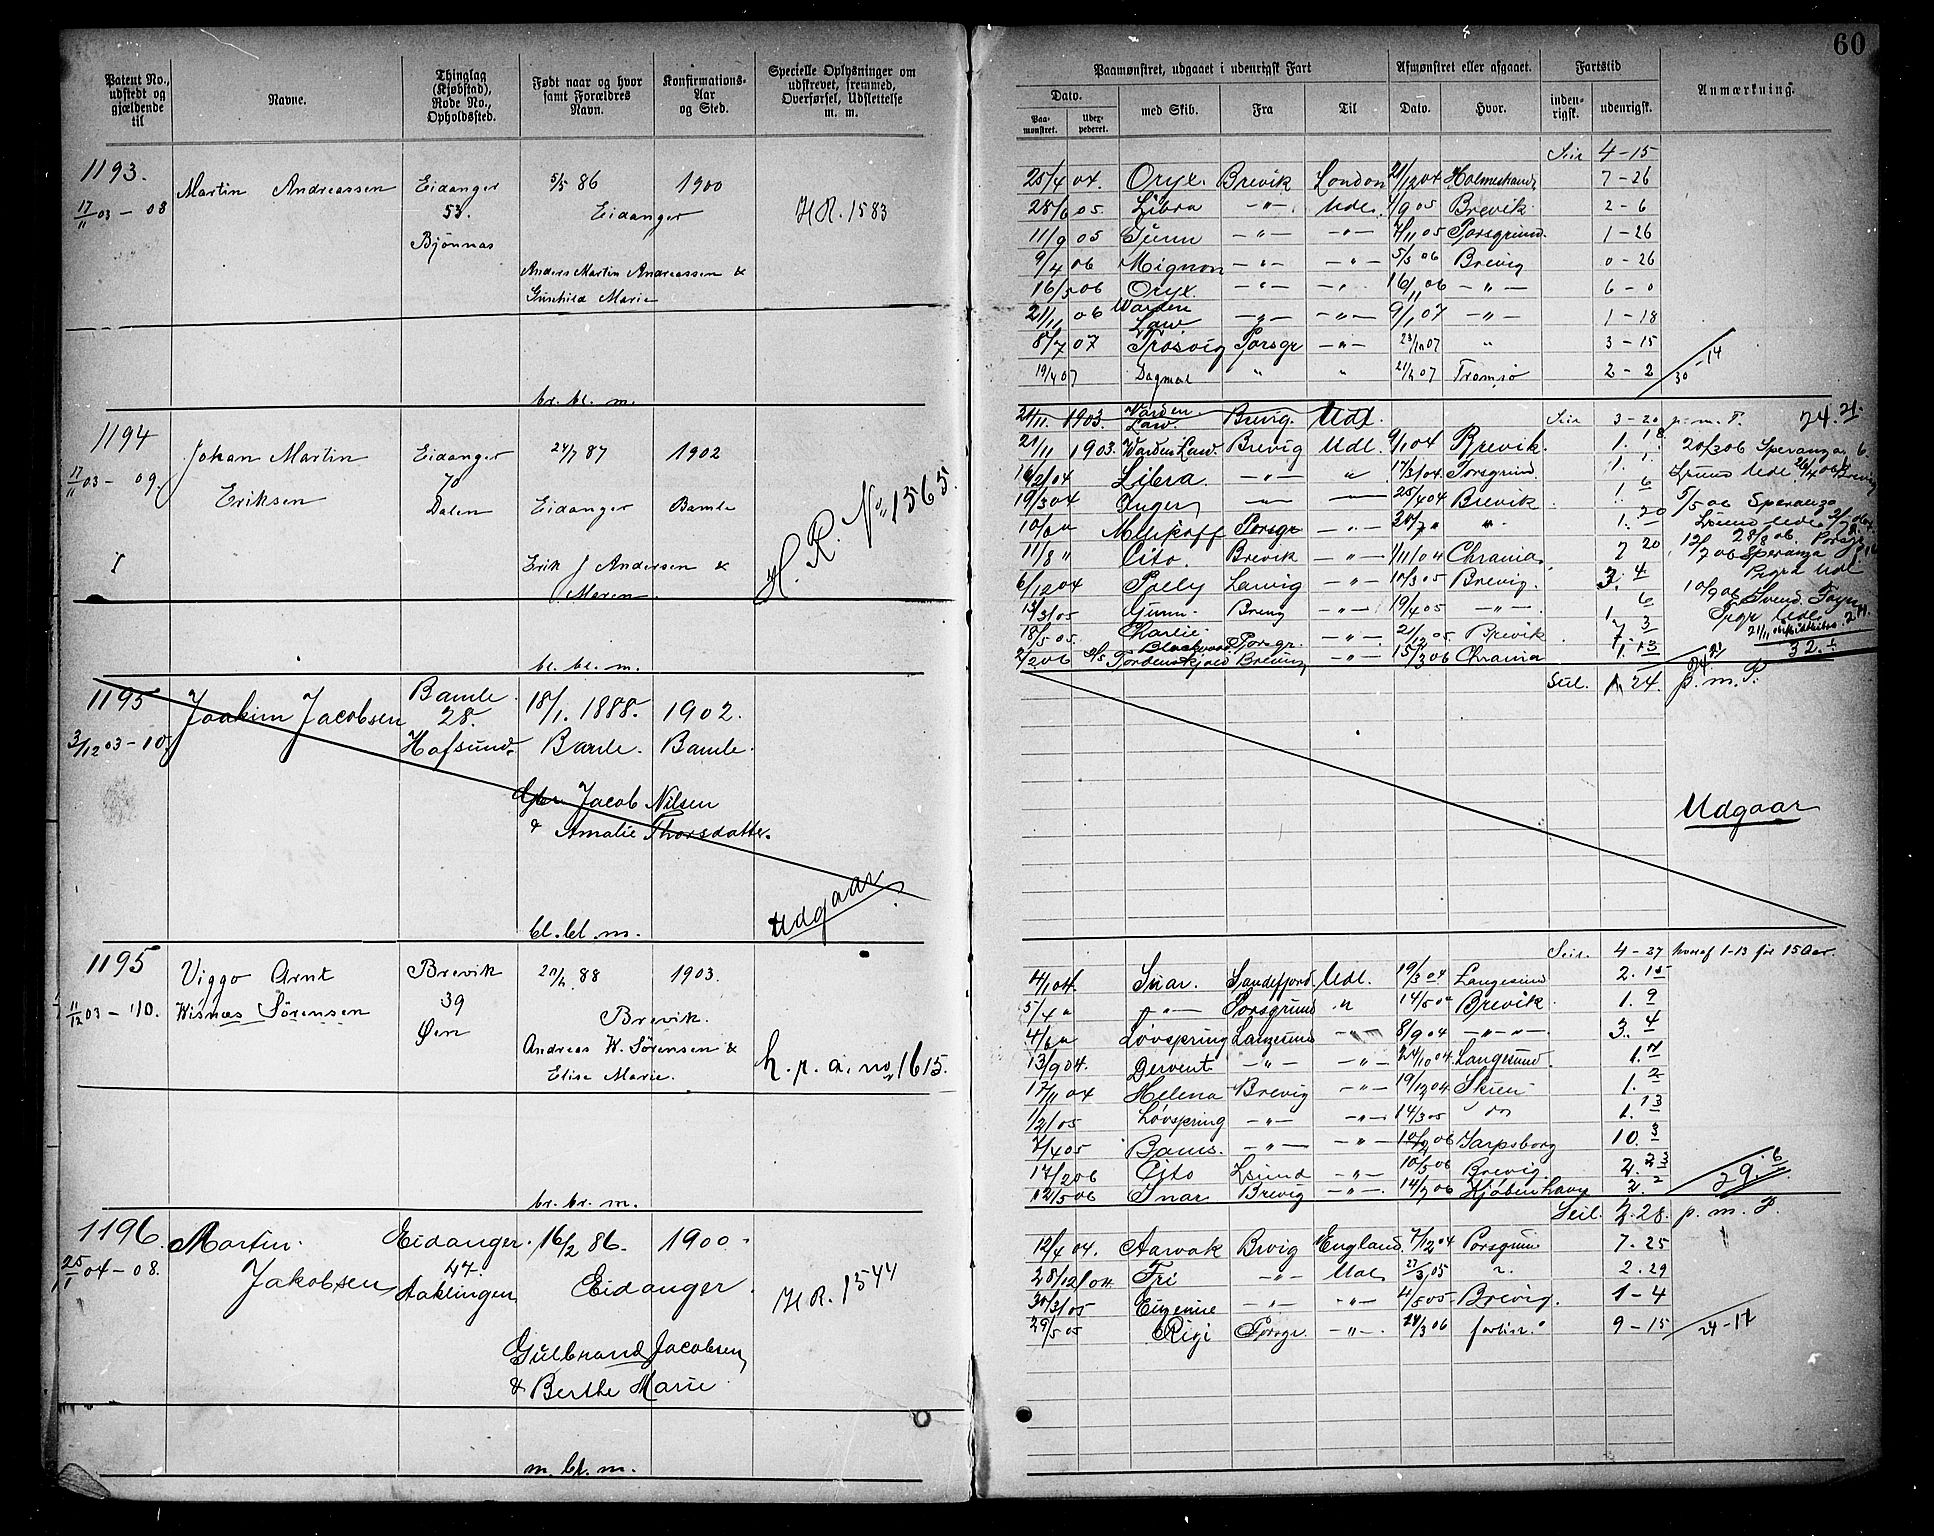 60
Patent No., udstedt og gjældende til
Navne.
Thinglag (Kjøbstad), Rode No., Opholdssted.
Født naar og hvor samt Forældres Navn.
Konfirmations-Aar og Sted.
Specielle Oplysninger om udskrevet, fremmed, Overførsel, Udslettelse m. m.
Paamønstret, udgaaet i udenrigsk Fart
Afmønstret eller afgaaet.
Fartstid
Anmærkning.
Dato.
Paa-mønstret.
Udex-pederet.
med Skib.
Fra
Til
Dato.
Hvor.
inden-rigsk.
udenrigsk.
1193.
17/11 03 - 08
Martin Andreassen
Eidanger
53.
Bjønnas
5/5 86
1900
Eidanger
Anders Martin Andreassen &
Gunhild Marie
br. bl. m.
H R. 1583
4 - 15
25/4 04. Oryx. Brevik London 21/12 04 Holmestrand 7 - 26
28/6 05. Libra - " - Udl. 1/9 05 Brevik 2 - 6
11/9 05 Gunn - " - - " - 7/11 05 Porsgrund. 1 - 26
9/4 06 Mignon - " - - " - 5/5 06 Brevig 0 - 26
16/5 06 Oryx. - " - - " - 16/11 06 - " - 6 - 0
21/11 06 Warden Law - " - - " - 9/1 07 - " - 1 - 18
8/7 07 Trosvig Porsgr - " - 23/10 07 " 3 - 15
19/4 07 Dagmar " " 21/6 07 Tromsø 2 - 2
30 - 14
1194
17/11 03 - 09.
Johan Martin
Eriksen
Eidanger
70
Dalen
24/7 87
1902
Eidanger Bamle
Erik J Andersen &
Maren.
bl. bl. m.
H. R. No. 1565.
21/11. 1903. Warden Law. Brevig. Udl. 3 - 20 p. m. P. 24. 21.
21/11 1903. Warden Law. Brevig Udl. 9/1 04 Brevik. 1. 18
16/2 04 Libra. - " - " 17/3 04 Porsgrund. 1. 1
19/3 04 Inger 25/4 04 Brevik 1. 6
10/6 " Porsgr - " - 1. 20
11/8 " Cito. Brevik - " - 1/11 04 Chrania. 2 20
6/12 04 Polly Larvig - " - 10/3 05 Brevig. 3. 4
13/3 05 Gunn. Brevig - " - 19/4 05 - " - 1. 6
18/5 05. Charlie Porsgr. - " - 21/12 05 Brevik 7 3
2/2 06 Tordenskjold Brevig - " - 15/3 06 Chrania 1. 13
20/3 06 Speranza
5/5 06 Speranza
12/7 06 Speranza
10/9 06 Svend
32.
1195
3/12 03 - 10.
Joakim Jacobsen
Bamle.
28.
Hafsund.
18/1. 1888. 1902.
Bamle. Bamle.
Jacob Nilsen
& Amalie Thorsdatter.
bl. bl. m.
Udgaar
24. p. m. P.
Udgaar
1195
11/12 03 - 10.
Viggo Arnt
Wisnæs Sørensen
Brevik
39
Øen
88
1903.
Brevik.
Andreas W. Sørensen &
Elise Marie.
br. br. m.
h. p. a. no 1615.
4 - 27 hvoraf 1-13 før 15 Aar.
4/1 04. Snar. Sandefjord. Udl. 19/3 04 Langesund 2. 15
5/4 " - " - Porsgrund " 14/5 04 Brevik. 1. 9
4/6 " Løvspring Langesund - " - 8/9 04 - " - " - 3. 4
13/9 04. Derwent - " - - " - 24/10 04. Langesund 1. 7
17/11 04 Helena Brevig - " - 19/12 04 Skien 1. 2
1/2 05 Løvspring - " - - " - 14/3 05 1. 13
7/4 05 - " - - " - 10/2 06 Sarpsborg 10. 3
17/2 06 Cito Lsund - " - 10/5 06 Brevig 2. 23
12/5 06 Snar Brevig - " - 14/7 06 Kjøbenhavn 2. 2
29. 6
1196.
25/1 04 - 08.
Martin
Jakobsen
Eidanger.
47.
Aaklingen
16/2 86.
1900.
Eidanger.
Gulbrand Jacobsen
& Berthe Marie
m. bl. m.
H R. 1544
Seil. 2. 28. p. m. P.
12/4 04. Aarvak Brvig England. 7/12 04 Porsgrun 7. 25
28/12 04 Fri - " - Udl 27/3 05 ". 2. 29
30/3 05 Eugenie - " - - " - 4/5 05 Brevig. 1 - 4
29/5 05 Rigi Porsgr. - " - 14/3 06 forlist. 9 - 15
24 - 17